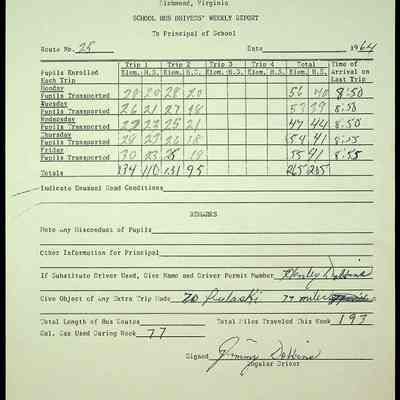 Richmond, Virginia
SCHOOL BUS DRIVERS' WEEKLY REPORT
To Principal of School
Route No. 25 Date 1964
Trip 1 Trip 2 Trip 3 Trip 4 Total Time of
Pupils Enrolled Elem. H.S. Elem. H.S. Elem. H.S. Elem. H.S. Elem. H.S. Arrival on
Each Trip Last Trip
Monday
Pupils Transported 28 20 28 20 56 40 8:50
Tuesday
Pupils Transported 26 21 27 18 53 39 8:50
Wednesday
Pupils Transported 23 25 21 47 44 8:50
Thursday
Pupils Transported 23 26 18 54 41
Friday
Pupils Transported 30 23 25 18 55 41 8:55
Totals 134 110 131 95 265 205
Indicate Unusual Road Conditions
REMARKS
Note Any Misconduct of Pupils
Other Information for Principal
If Substitute Driver Used, Give Name and Driver Permit Number Dobbins
Give Object of Any Extra Trip Made To Pulaski 77 miles
Total Length of Bus Routes Total Miles Traveled This Week 193
Gal. Gas Used During Week 77
Signed Jimmy Dobbins
Regular Driver